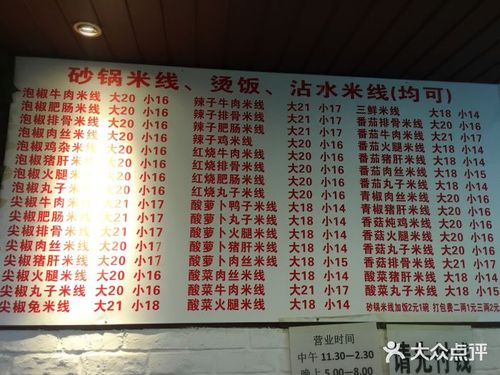 砂锅米线、烫饭、沾水米线(均可)
泡椒牛肉米线 大20 小16
泡椒肥肠米线 大20 小16
泡椒排骨米线 大20 小16
泡椒肉丝米线 大20 小16
泡椒鸡杂米线 大20 小16
泡椒火腿米线 大20 小16
泡椒猪肝米线 大20 小16
泡椒丸子米线 大20 小16
尖椒牛肉米线 大21 小17
尖椒肥肠米线 大21 小17
尖椒排骨米线 大21 小17
尖椒肉丝米线 大20 小17
尖椒猪肝米线 大20 小16
尖椒火腿米线 大20 小16
尖椒丸子米线 大20 小16
尖椒兔米线 大21 小18
辣子牛肉米线 大21 小17
辣子肥肠米线 大21 小17
辣子排骨米线 大21 小17
辣子鸡米线 大20 小16
红烧牛肉米线 大20 小16
红烧肥肠米线 大20 小16
红烧排骨米线 大20 小16
红烧猪肝米线 大20 小16
红烧丸子米线 大20 小16
酸萝卜鸭子米线 大18 小14
酸萝卜丸子米线 大18 小14
酸萝卜火腿米线 大18 小14
酸萝卜猪肝米线 大18 小14
酸萝卜肉丝米线 大18 小15
酸菜肉丝米线 大18 小14
酸菜火腿米线 大18 小14
三鲜米线 大18 小14
番茄排骨米线
番茄火腿米线
番茄猪肝米线
番茄肉丝米线
番茄丸子米线
青椒肉丝米线
青椒猪肝米线
香菇炖鸡米线
香菇火腿米线
香菇排骨米线
香菇肉丝米线
香菇丸子米线
酸菜猪肝米线 大18 小14
砂锅米线加饭2元1碗 打包费二两1元三两2元
营业时间
中午 11.30－2.30
晚上 5.00－8.00
请先付钱
大众点评